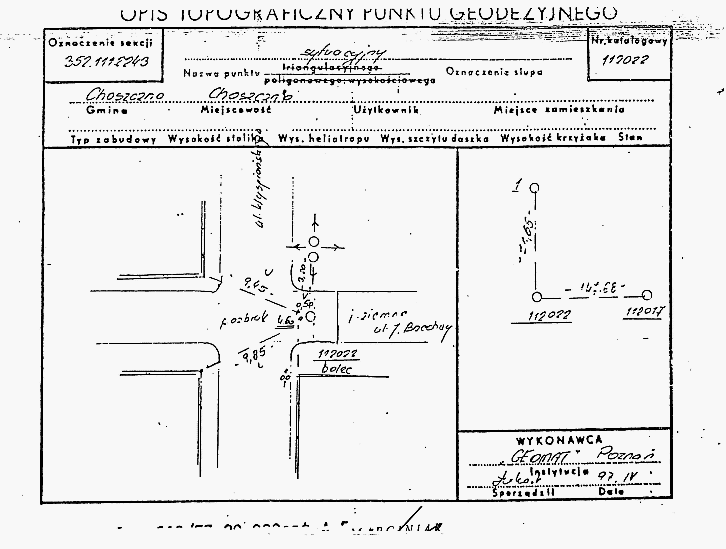 OPIS TOPOGRAFICZNY PUNKTU GEODEZYJNEGO
Oznaczenie sekcji
352.1112243
sytuacyjny
Nazwa punktu triangulacyjnego
poligonowego, wysokościowego
Oznaczenie słupa
Nr. katalogowy
112022
Choszczno Choszczno
Gmina Miejscowość Użytkownik Miejsce zamieszkania
Typ zabudowy Wysokość stolika Wys. heliotropu Wys. szczytu daszka Wysokość krzyżaka Stan
ul. Wyspiańskiego
9,45
0,50
pozbruk 4,60
j. ziemna
9,85
112022
bolec
1
112022 112017
WYKONAWCA
"GEOMAT" Poznań
Instytucja
97.IV
Sporządził Data